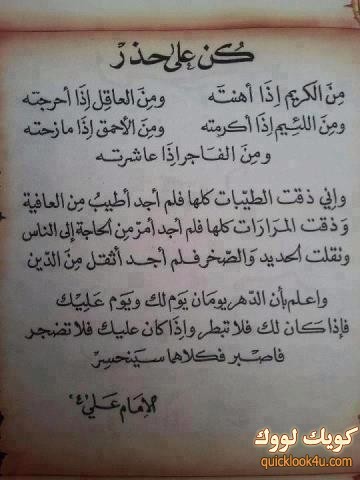 كُن على حذر
مِنَ الكريم إذَا أهنتَه ومِنَ العاقِل إذَا أحرجته
ومِنَ اللئيم إذَا أكرمته ومِنَ الأحمق إذَا مازحته
ومِنَ الفَاجر إذَا عاشرته
وإني ذقت الطيّبات كلها فلم أجد أطيبُ من العافية
وَذقت المرَارَات كلها فلم أجد أمرّ من الحاجة إلى الناس
ونقلت الحديد وَالصّخر فلم أجد أثقل مِنَ الدّين
واعلم بأن الدّهر يومَان يَوم لك ويَوم عَليك
فإذا كَان لك فلا تبطر وإذا كان عليك فلا تضجر
فاصْبر فكلاهمَا سَينحسِرْ
الإمَام عَلي "ع"
كويك لووك
quicklook4u.com